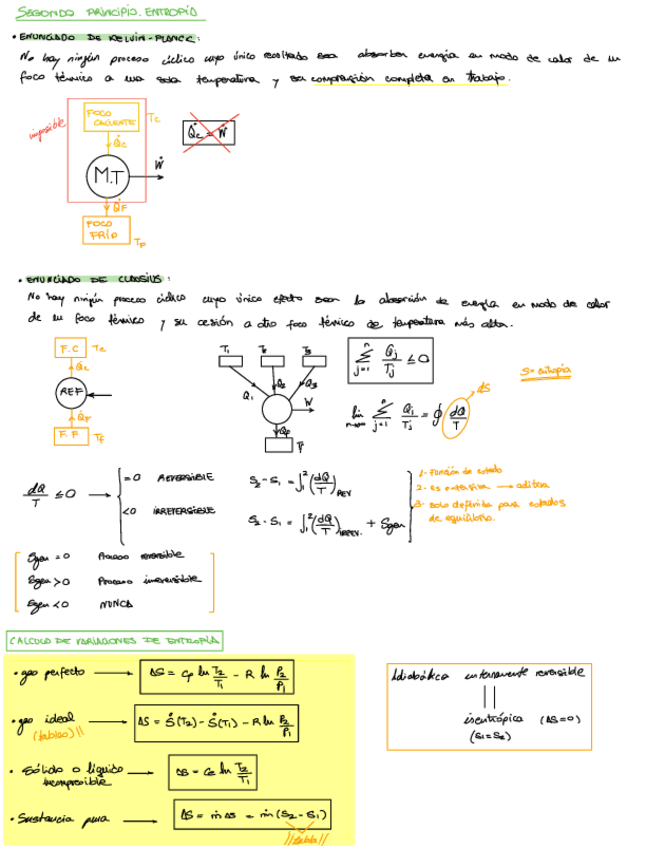 SEGUNDO PRINCIPIO. ENTROPÍA
• ENUNCIADO DE KELVIN-PLANCK:
No hay ningún proceso cíclico cuyo único resultado sea absorber energía en modo de calor de un
foco térmico a una sola temperatura y su conversión completa en trabajo.
imposible
FOCO CALIENTE Tc
Q̇c
Q̇c = Ẇ
M.T Ẇ
Q̇F
FOCO FRÍO TF
• ENUNCIADO DE CLAUSIUS:
No hay ningún proceso cíclico cuyo único efecto sean la absorción de energía en modo de calor
de un foco térmico y su cesión a otro foco térmico de temperatura más alta.
F.C Tc
Q̇c
REF
Q̇F
F.F TF
T1 T2 T3
Q1 Q2 Q3
W
∑ⁿj=1 Qj/Tj ≤ 0
lim n→∞ ∑ⁿj=1 Qj/Tj = ∮ dQ/T
dS
S = entropía
dQ/T ≤ 0 → = 0 REVERSIBLE
< 0 IRREVERSIBLE
S2 - S1 = ∫₁² (dQ/T) REV
S2 - S1 = ∫₁² (dQ/T) IRREV. + Sgen
1- Función de estado
2- es extensiva → aditiva
3- solo definida para estados
de equilibrio.
Sgen = 0 Proceso reversible
Sgen > 0 Proceso irreversible
Sgen < 0 NUNCA
CALCULO DE VARIACIONES DE ENTROPÍA
• gas perfecto → ΔS = Cp ln T2/T1 - R ln P2/P1
• gas ideal → ΔS = S°(T2) - S°(T1) - R ln P2/P1
(tablas)
• Sólido o líquido → ΔS = Ce ln T2/T1
incompresible
• Sustancia pura → ΔS = ṁ Δs = ṁ (S2 - S1)
tabla
Adiabática internamente reversible
||
isentrópica (ΔS = 0)
(S1 = S2)